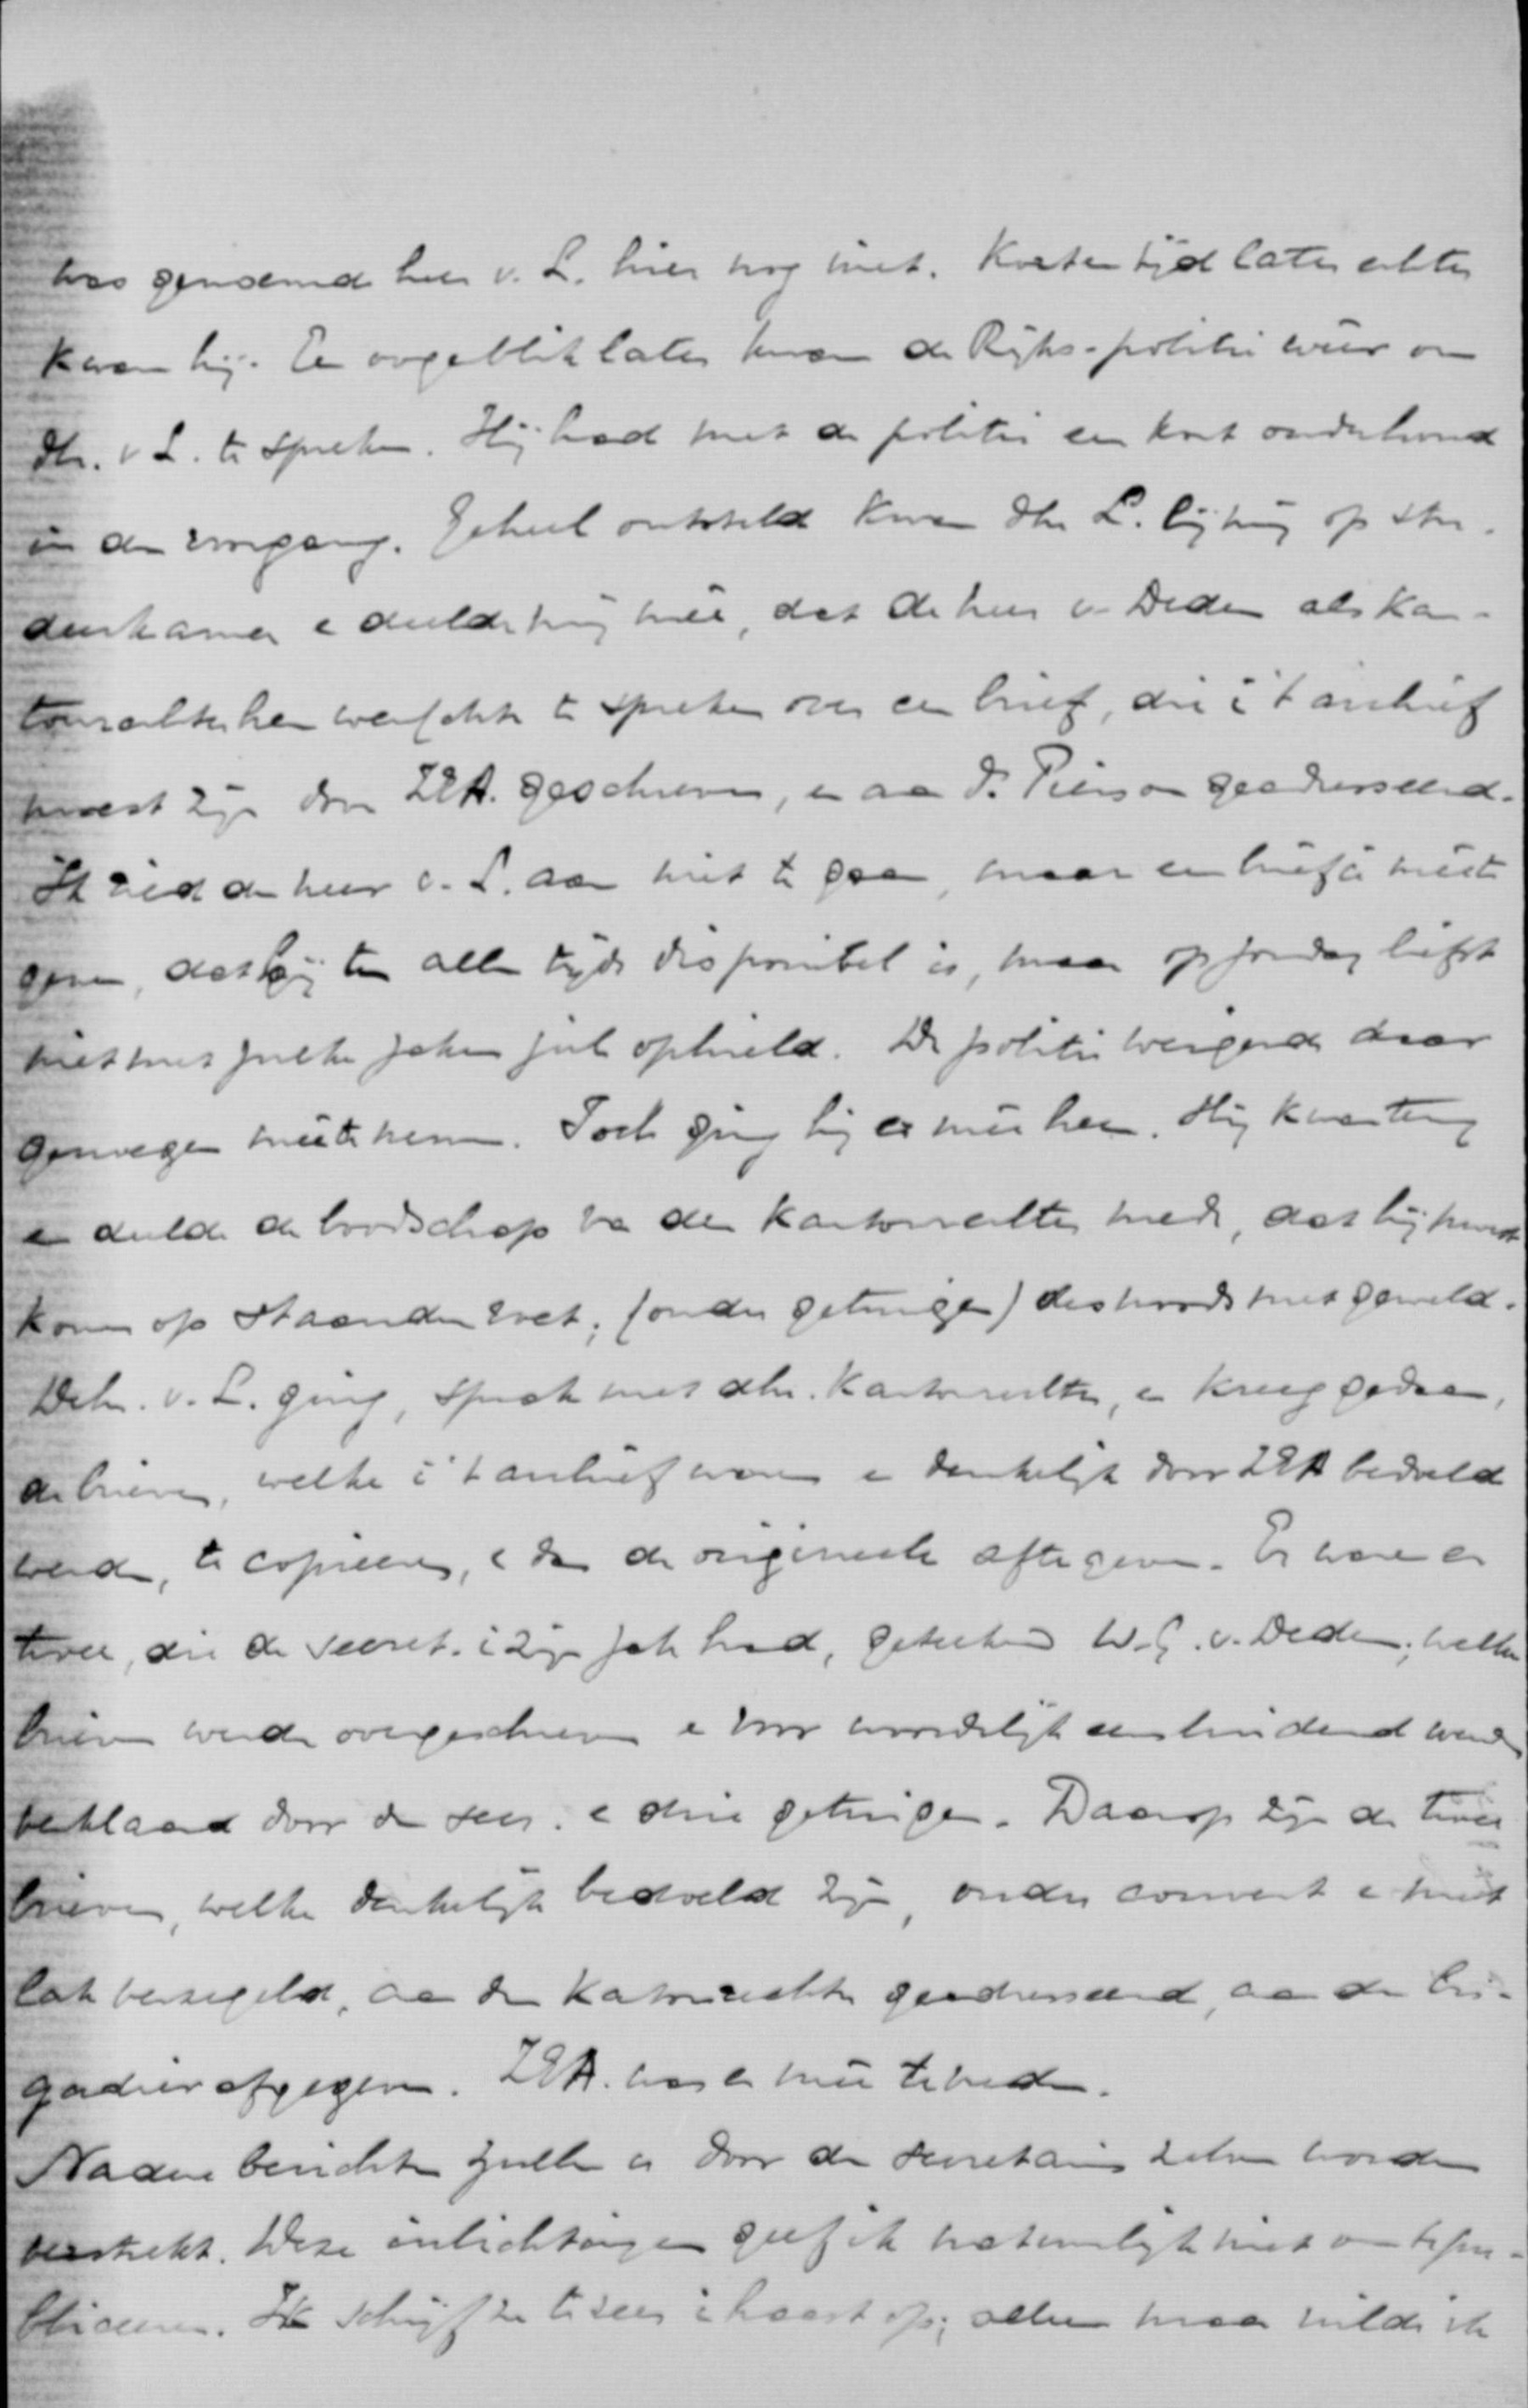 was genoemde heer v. L. hier nog niet. Korten tijd later echter
kwam hij. Een oogenblik later kwam de Rijks-politie weer om
dhr. v L. te spreken. Hij had met de politie een kort onderhoud
in den voorgang. Geheel ontsteld kwam dhr L. bij mij op stu-
deerkamer en deelde mij mee, dat de heer v. Dedem als kan-
tonrechter hem wenschte te spreken over een brief, die i 't archief
moest zijn door ZEA. geschreven, en aan Ds. Pierson geadresseerd.
Ik ried den heer v. L. aan niet te gaan, maar een briefje mee te
geven, dat hij ten allen tijde disponibel is, maar op zondag liefst
niet met zulke zaken zich ophield. De politie weigerde daar
genoegen mee te nemen. Toch ging hij er mee heen. Hij kwam terug
en deelde de boodschap van den kantonrechter mede, dat hij moest
komen op staanden voet; (onder getuigen) desnoods met geweld.
Dehr. v. L. ging, sprak met dhr. Kantonrechter, en kreeg gedaan,
de brieven, welke i 't archief waren en denkelijk door ZEA bedoeld
werden, te copieeren, en dan de origineele af te geven. Er waren er
twee, die de secret. i zijn zak had, geteekend W. G. v. Dedem; welke
brieven werden overgeschreven en voor woordelijk eensluidend werden
verklaard door den secr. en drie getuigen. Daarop zijn de twee
brieven, welke denkelijk bedoeld zijn, onder couvert en met
lak verzegeld, aan den Kantonrechter geadresseerd, aan den bri-
gadier afgegeven. ZEA. was er mee tevreden.
Nadere berichten zullen er door den secretaris zelven worden
verstrekt. Deze inlichtingen geef ik natuurlijk niet om te pu-
bliceeren. Ik schrijf ze tevens i haast op; alleen maar wilde ik